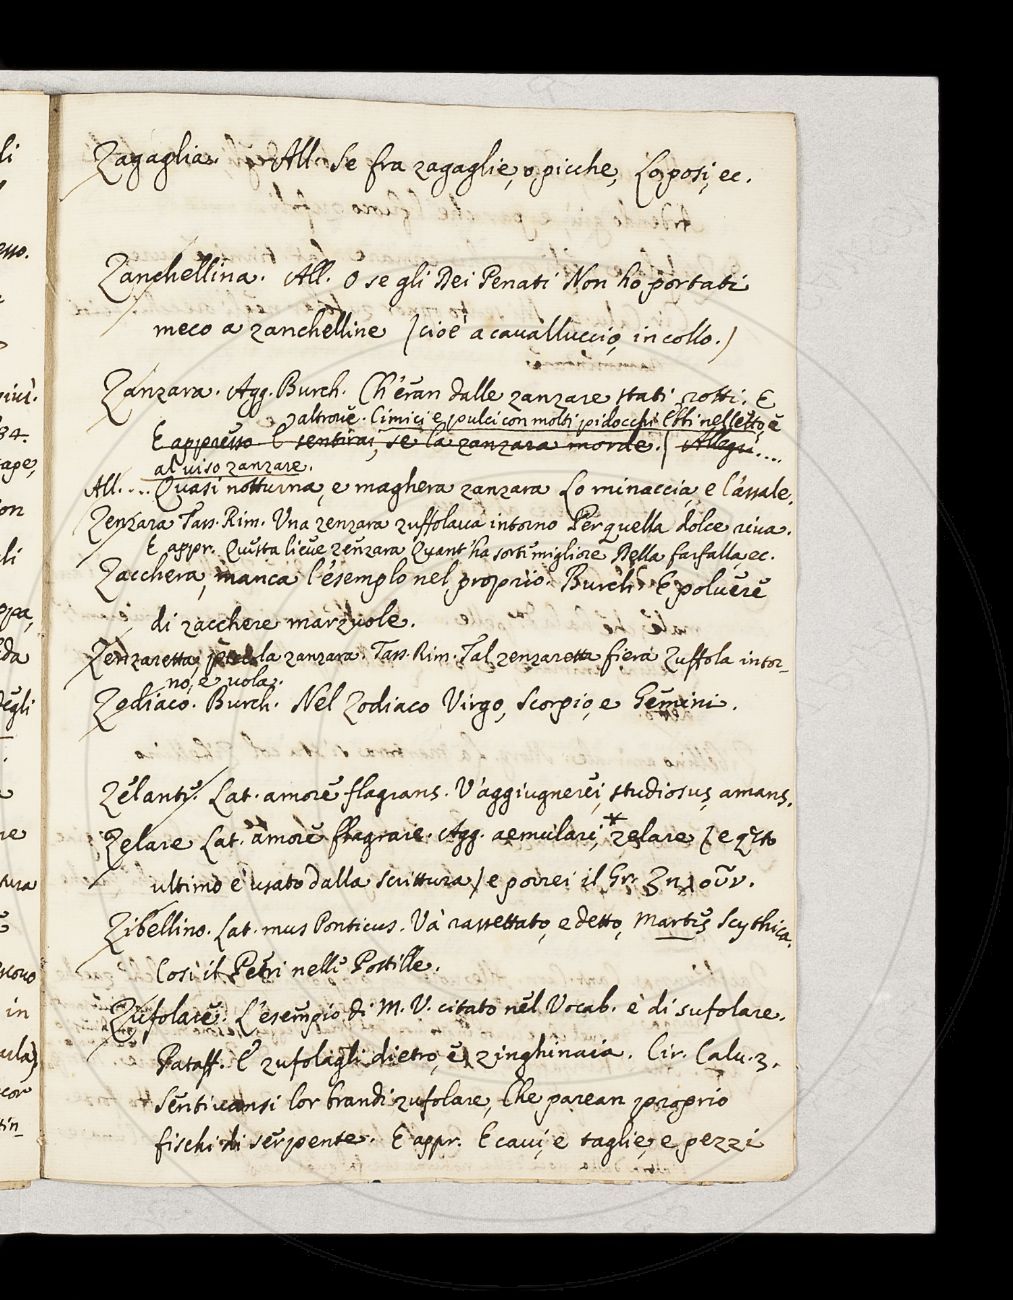 Zagaglia. All. Se fra zagaglie, o picche, Lo posi, ec.
Zanchellina. All. O se gli Dei Penati Non ho portati
meco a zanchelline (cioè a cavalluccio, in collo.)
Zanzara. Agg. Burch. Ch'eran dalle zanzare stati rotti. E
altrove. Cimici e pulci con molti pidocchi Ebbi nel letto, e
E appresso E sentirai, se la zanzara morde. (Allegri....
al viso zanzare.
All.... Quasi notturna, e maghera zanzara Lo minaccia, e l'assale.
Zenzara Tass. Rim. Una zenzara zuffolava intorno Per quella dolce riva.
E appr. Questa lieve zenzara Quant'ha sorte migliore Della farfalla, ec.
Zacchera, manca l'esemplo nel proprio. Burch. E polvere
di zacchere marzuole.
Zenzaretta, la zanzara. Tass. Rim. Tal zenzaretta fiera Zuffola intor-
no, e vola.
Zodiaco. Burch. Nel Zodiaco Virgo, Scorpio, e Gemini.
Zelante. Lat. amore flagrans. V'aggiugnerei, studiosus, amans.
Zelare Lat. amore flagrare. Agg. aemulari, * zelare (e qsto
ultimo è usato dalla Scrittura) e porrei il Gr. ζηλοῦν.
Zibellino. Lat. mus Ponticus. Va rassettato, e detto, Martes Scythica.
Così il Petri nelle Postille.
Zufolare. L'esempio di M. V. citato nel Vocab. è di sufolare.
Pataff. E zufolagli dietro, e zinghinaia. Cir. Calv. 3.
Sentivansi lor brandi zufolare, Che parean proprio
fischi di serpente. E appr. E cavi, e taglie, e pezzi